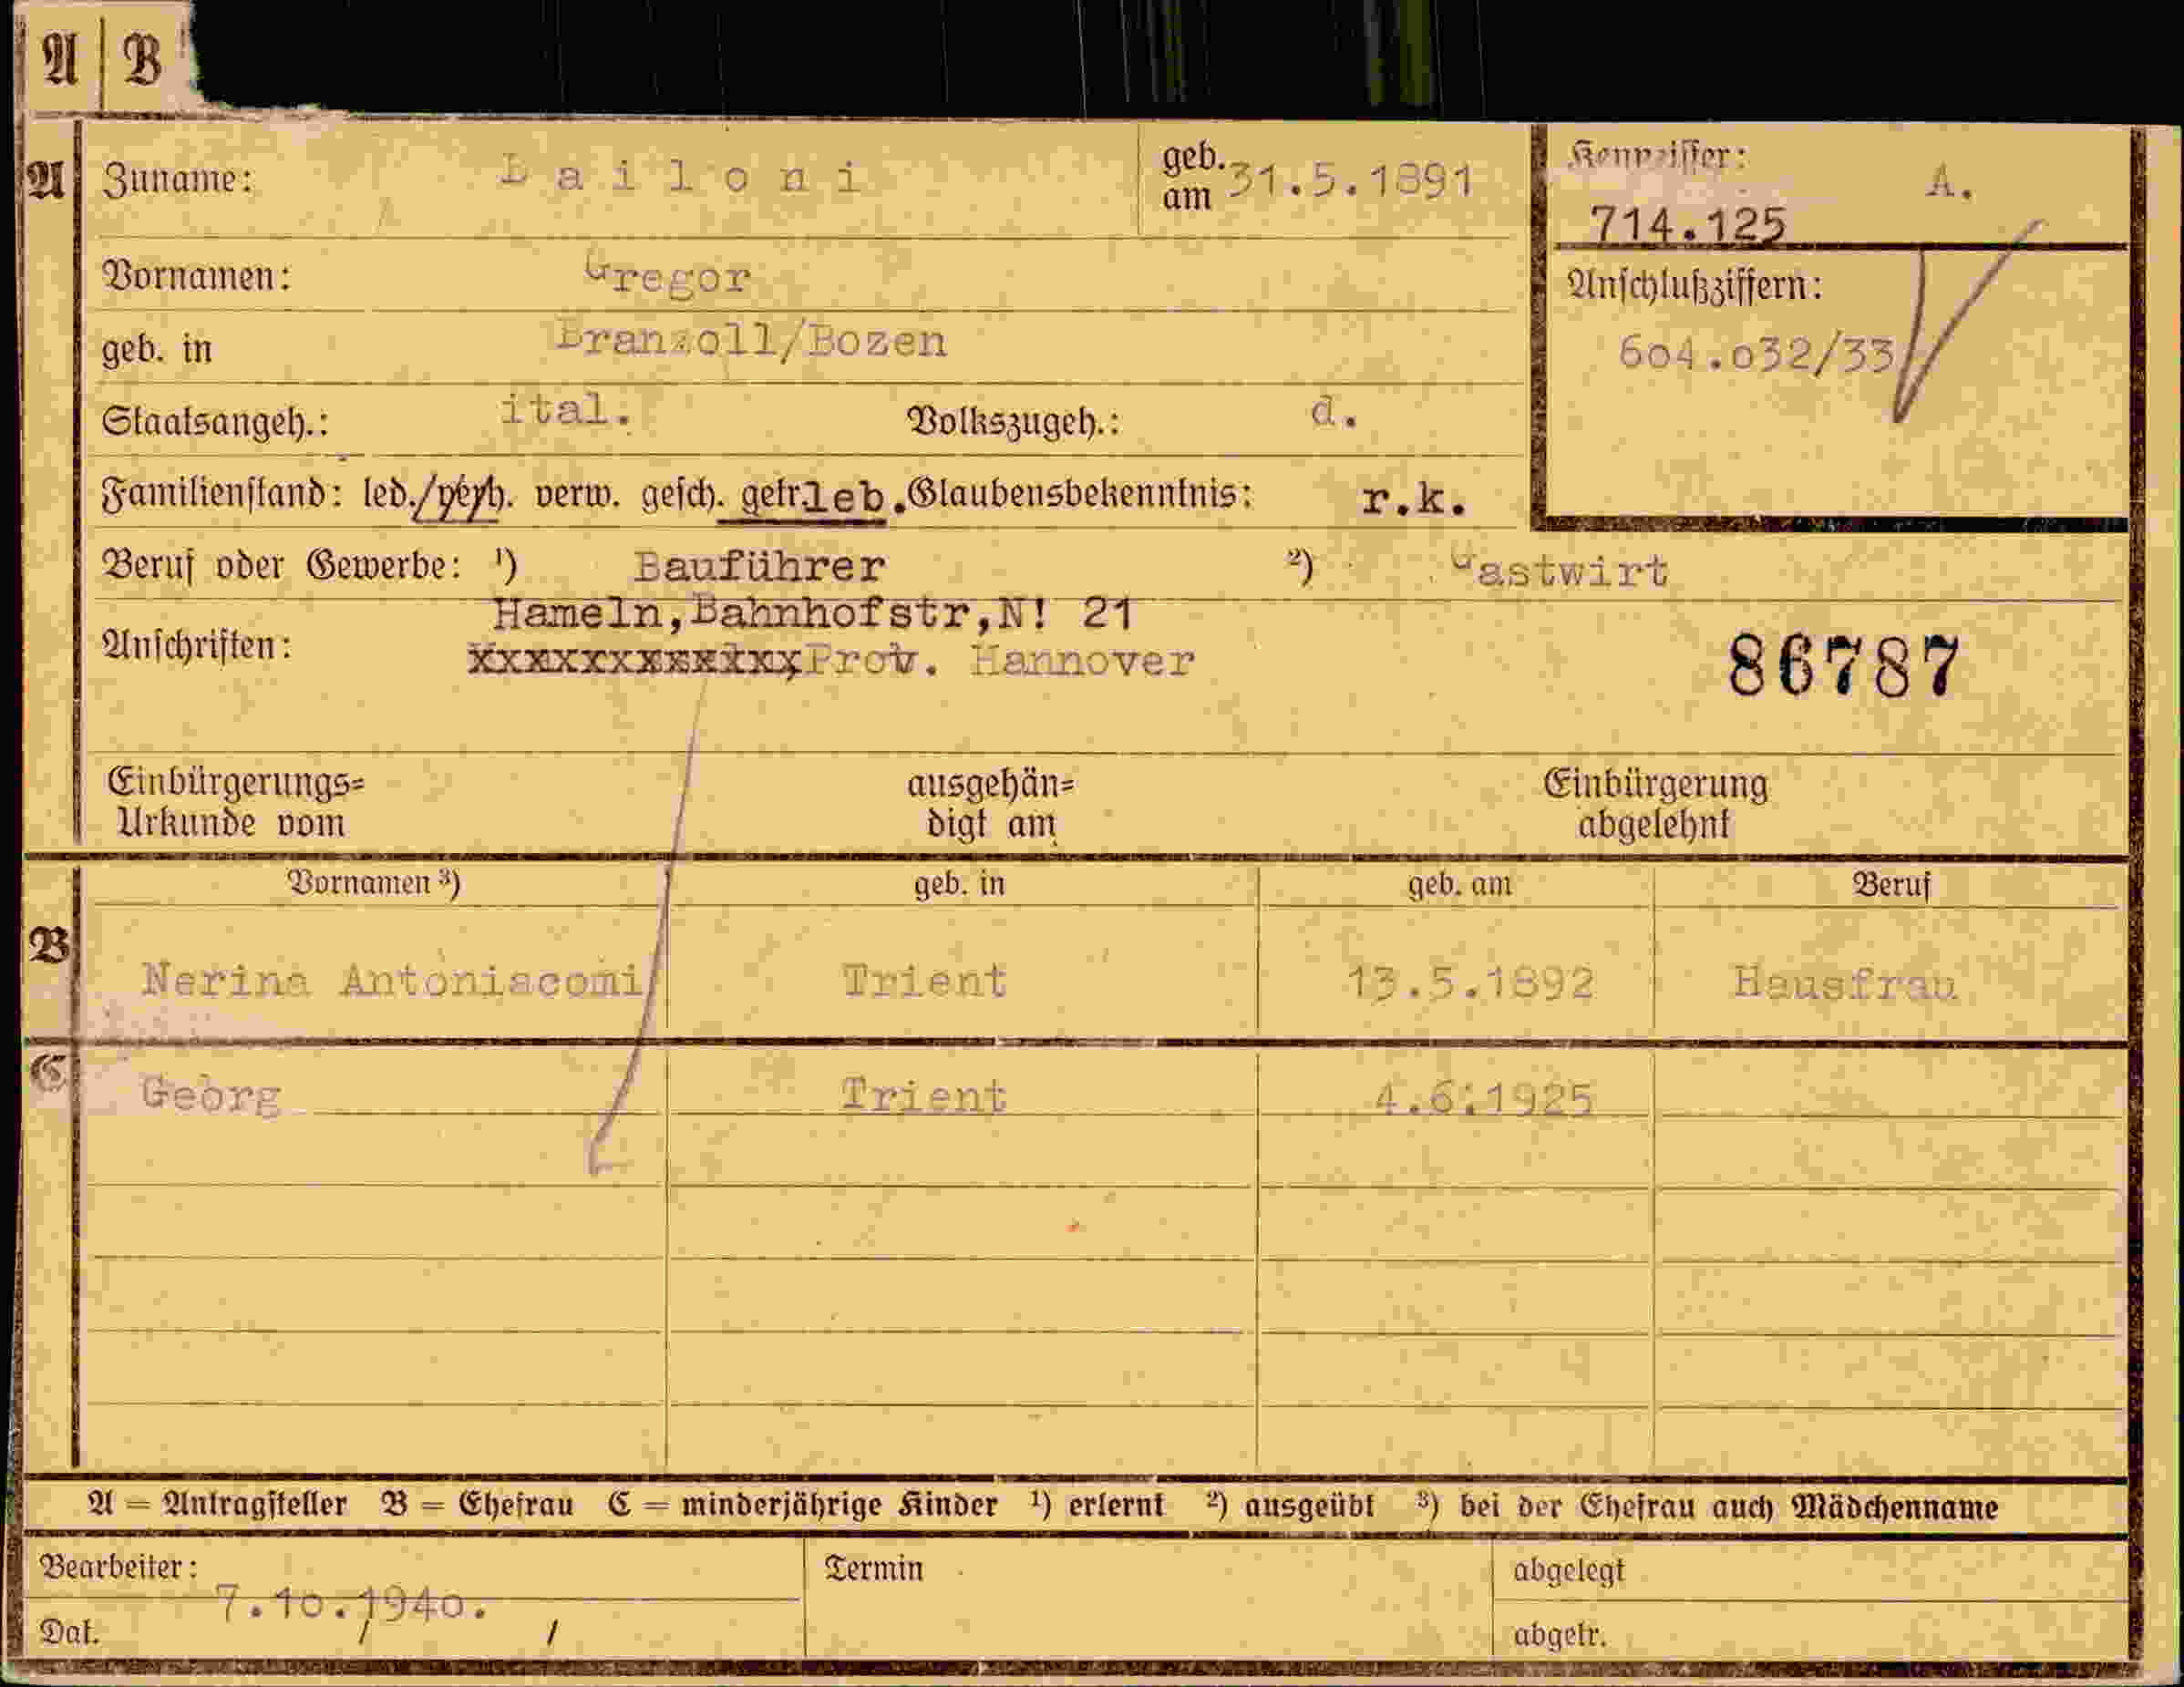 A B
A Zuname: Bailoni geb. am 31.5.1891 Kennziffer: A.
714.125
Vornamen: Gregor Anschlußziffern:
geb. in Branzoll/Bozen 604.032/33
Staatsangeh.: ital. Volkszugeh.: d.
Familienstand: led./verh. verw. gesch. getr.leb. Glaubensbekenntnis: r.k.
Beruf oder Gewerbe: ¹) Bauführer ²) Gastwirt
Hameln,Bahnhofstr,N! 21
Anschriften: Prov. Hannover 86787
Einbürgerungs= ausgehän= Einbürgerung
Urkunde vom digt am abgelehnt
Vornamen ³) geb. in geb. am Beruf
B Nerina Antoniacomi Trient 13.5.1892 Hausfrau
C Georg Trient 4.6.1925
A = Antragsteller B = Ehefrau C = minderjährige Kinder ¹) erlernt ²) ausgeübt ³) bei der Ehefrau auch Mädchenname
Bearbeiter: Termin abgelegt
7.10.1940.
Dat. / / abgetr.